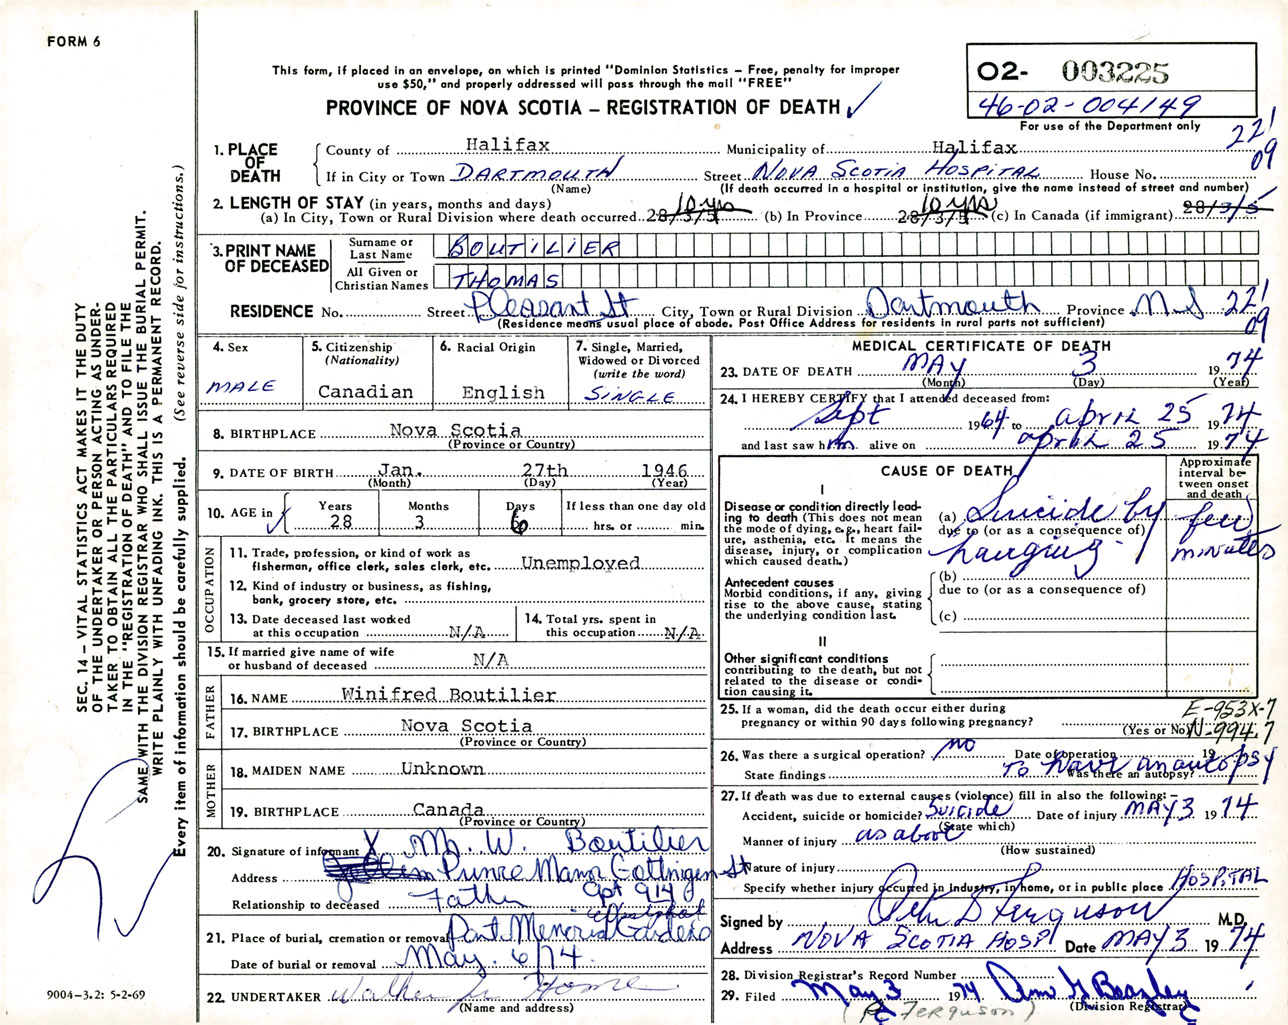 FORM 6
This form, if placed in an envelope, on which is printed "Dominion Statistics – Free, penalty for improper
use $50," and properly addressed will pass through the mail "FREE"
PROVINCE OF NOVA SCOTIA – REGISTRATION OF DEATH ✓
O2- 003225
46-02-004149
For use of the Department only
221
09
1. PLACE OF DEATH
County of Halifax Municipality of Halifax
If in City or Town DARTMOUTH Street NOVA SCOTIA HOSPITAL House No.
(Name) (If death occurred in a hospital or institution, give the name instead of street and number)
2. LENGTH OF STAY (in years, months and days)
10 yrs 10 yrs
(a) In City, Town or Rural Division where death occurred 28/3/5 (b) In Province 28/3/5 (c) In Canada (if immigrant) 28/3/5
3. PRINT NAME OF DECEASED
Surname or Last Name BOUTILIER
All Given or Christian Names THOMAS
RESIDENCE No. Street Pleasant St City, Town or Rural Division Dartmouth Province N.S 221
09
(Residence means usual place of abode. Post Office Address for residents in rural parts not sufficient)
4. Sex MALE
5. Citizenship (Nationality) Canadian
6. Racial Origin English
7. Single, Married, Widowed or Divorced (write the word) SINGLE
8. BIRTHPLACE Nova Scotia
(Province or Country)
9. DATE OF BIRTH Jan. 27th 1946
(Month) (Day) (Year)
10. AGE in ✓ Years 28 Months 3 Days 6 If less than one day old hrs. or min.
OCCUPATION
11. Trade, profession, or kind of work as
fisherman, office clerk, sales clerk, etc. Unemployed
12. Kind of industry or business, as fishing,
bank, grocery store, etc.
13. Date deceased last worked
at this occupation N/A
14. Total yrs. spent in
this occupation N/A
15. If married give name of wife
or husband of deceased N/A
FATHER
16. NAME Winifred Boutilier
17. BIRTHPLACE Nova Scotia
(Province or Country)
MOTHER
18. MAIDEN NAME Unknown
19. BIRTHPLACE Canada
(Province or Country)
20. Signature of informant X Mr. W. Boutilier
Address Prince Manor Gottingen St
Apt 914
Relationship to deceased Father
21. Place of burial, cremation or removal Dart. Memorial Gardens
Date of burial or removal May. 6/74.
22. UNDERTAKER Walker Home
(Name and address)
MEDICAL CERTIFICATE OF DEATH
23. DATE OF DEATH MAY 3 1974
(Month) (Day) (Year)
24. I HEREBY CERTIFY that I attended deceased from:
Sept 1964 to april 25 1974
and last saw him alive on april 25 1974
CAUSE OF DEATH
Approximate interval between onset and death
I
Disease or condition directly leading to death (This does not mean the mode of dying, e.g., heart failure, asthenia, etc. It means the disease, injury, or complication which caused death.)
(a) Suicide by few
due to (or as a consequence of)
hanging minutes
Antecedent causes
Morbid conditions, if any, giving rise to the above cause, stating the underlying condition last.
(b)
due to (or as a consequence of)
(c)
II
Other significant conditions
contributing to the death, but not related to the disease or condition causing it.
25. If a woman, did the death occur either during
pregnancy or within 90 days following pregnancy?
(Yes or No)
E-953X-7
N-994.7
26. Was there a surgical operation? no Date of operation 19
State findings Was there an autopsy? To have an autopsy
27. If death was due to external causes (violence) fill in also the following: –
Accident, suicide or homicide? Suicide Date of injury MAY 3 1974
(State which)
Manner of injury as above
(How sustained)
Nature of injury
Specify whether injury occurred in industry, in home, or in public place HOSPITAL
Signed by Ferguson M.D.
Address NOVA SCOTIA HOSP Date MAY 3 1974
28. Division Registrar's Record Number
29. Filed May 3 1974
(Division Registrar)
Ferguson)
SEC. 14 – VITAL STATISTICS ACT MAKES IT THE DUTY
OF THE UNDERTAKER OR PERSON ACTING AS UNDER-
TAKER TO OBTAIN ALL THE PARTICULARS REQUIRED
IN THE "REGISTRATION OF DEATH" AND TO FILE THE
SAME WITH THE DIVISION REGISTRAR WHO SHALL ISSUE THE BURIAL PERMIT.
WRITE PLAINLY WITH UNFADING INK. THIS IS A PERMANENT RECORD.
Every item of information should be carefully supplied. (See reverse side for instructions.)
9004-3.2: 5-2-69